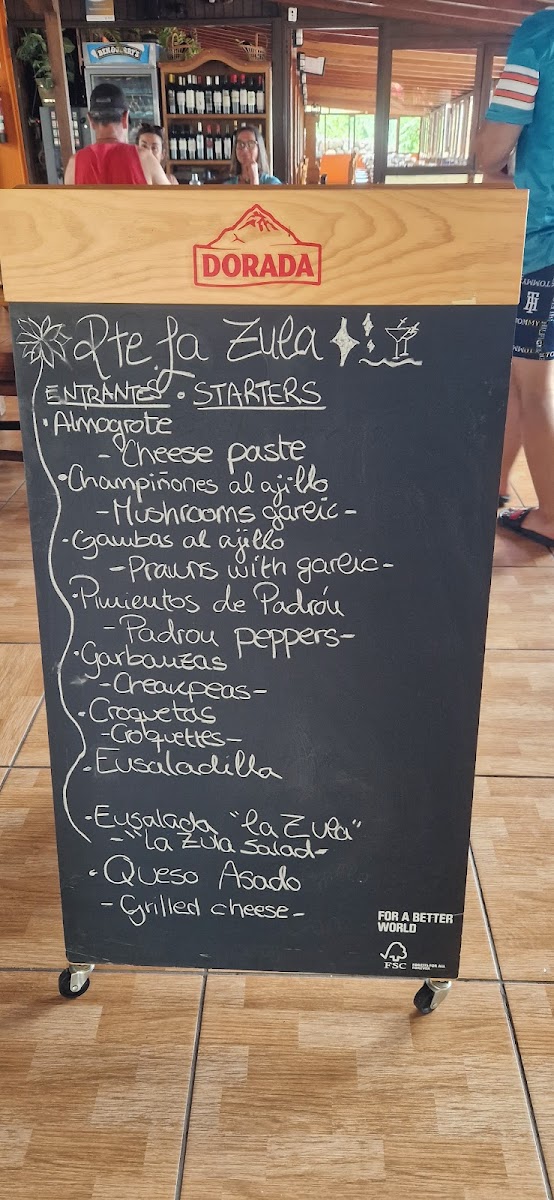 BEN&JERRY'S
DORADA
Rte La Zula
ENTRANTES • STARTERS
• Almogrote
- Cheese paste
• Champiñones al ajillo
- Mushrooms garlic -
• Gambas al ajillo
- Prawns with garlic -
• Pimientos de Padrón
- Padron peppers -
• Garbanzas
- Cheakpeas -
• Croquetas
- Croquettes -
• Ensaladilla
• Ensalada "la Zula"
- "La Zula Salad -
• Queso Asado
- Grilled cheese -
FOR A BETTER
WORLD
FSC
FORESTS FOR ALL
FOREVER
TOMMY
TOMMY